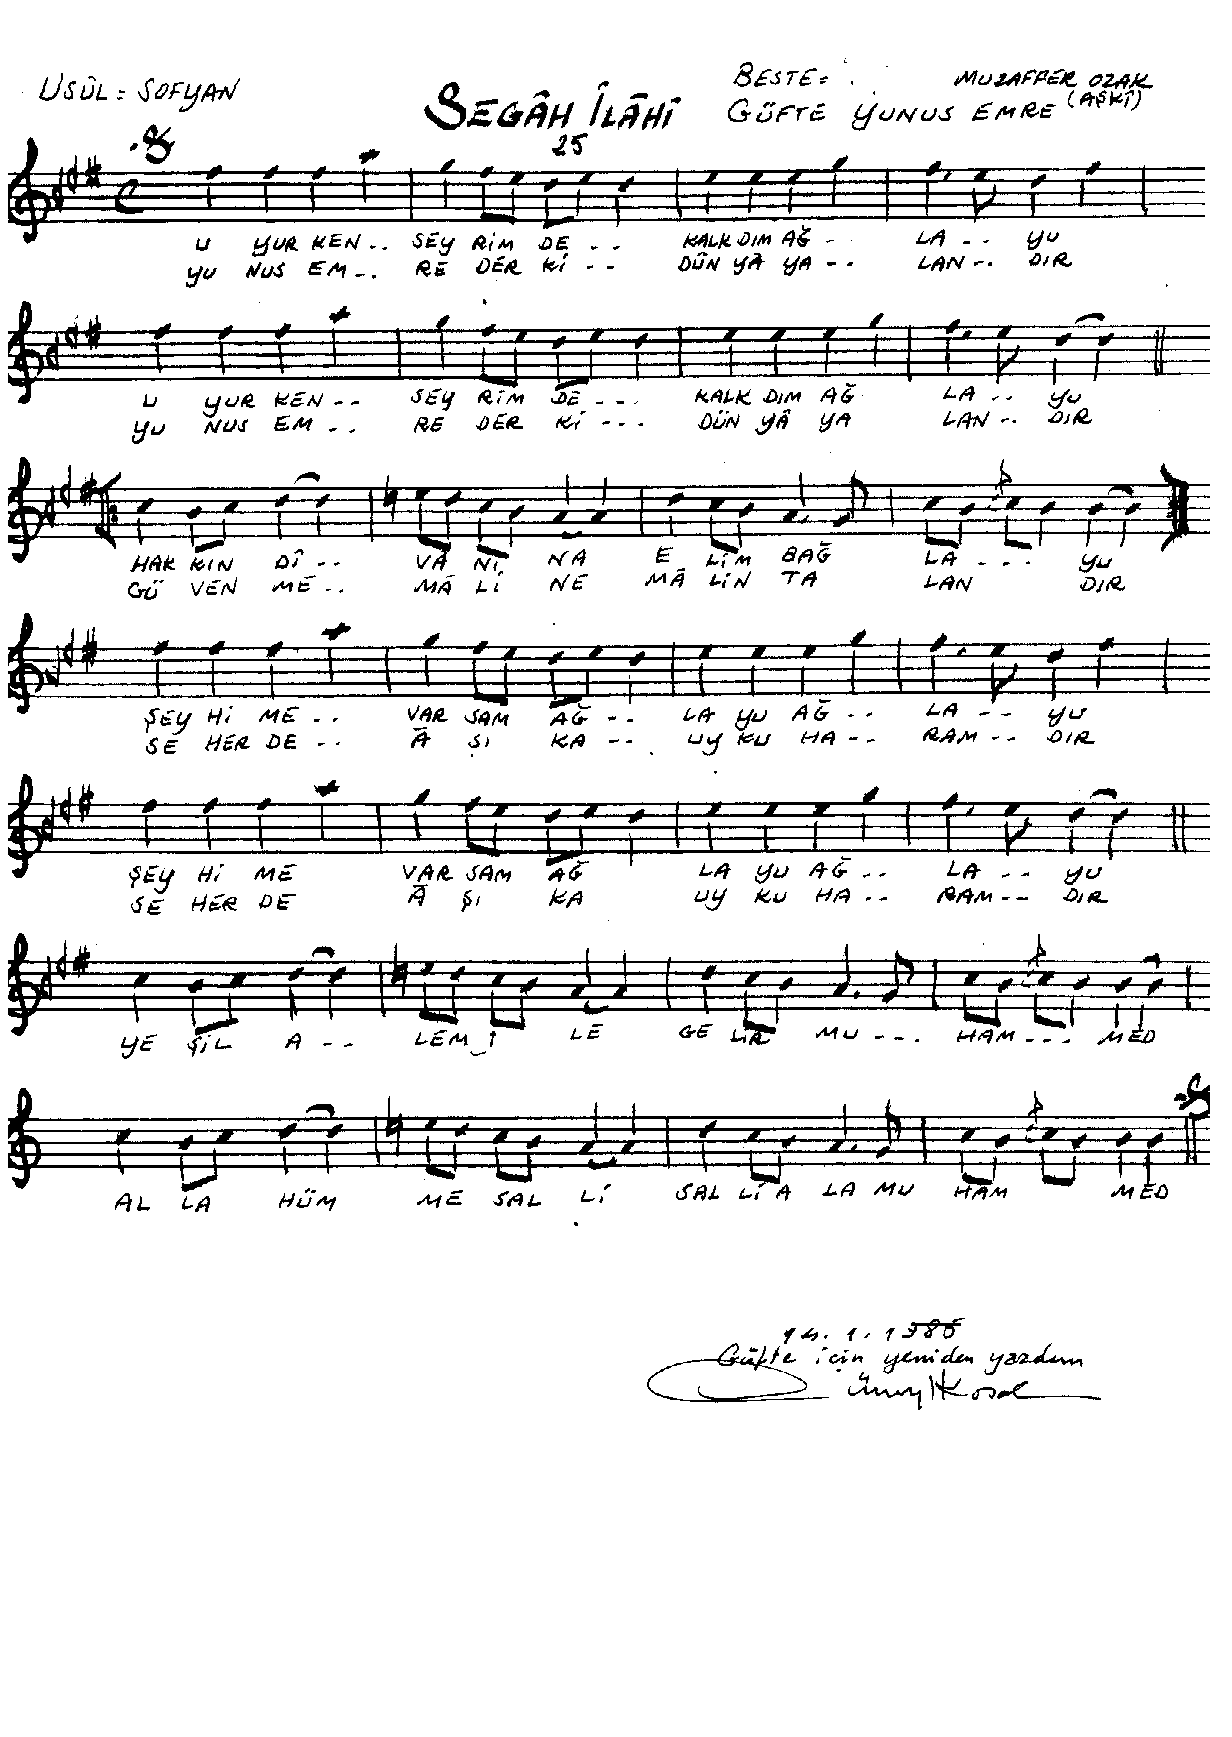 USÛL = SOFYAN
SEGÂH ÎLÂHÎ
25
BESTE = MUZAFFER OZAK
(AŞKÎ)
GÜFTE YUNUS EMRE
U YUR KEN.. SEY RİM DE -.. KALK DIM AĞ -. LA -.. YU
YU NUS EM -.. RE DER Kİ -.. DÜN YÂ YA -.. LAN -.. DIR
U YUR KEN -.. SEY RİM DE -... KALK DIM AĞ LA -.. YU
YU NUS EM -.. RE DER Kİ -... DÜN YÂ YA LAN -.. DIR
HAK KIN DÎ -.. VÂ NI NA E LİM BAĞ LA -... YU
GÜ VEN ME -.. MÂ Lİ NE MÂ LIN TA LAN DIR
ŞEY Hİ ME -.. VAR SAM AĞ -.. LA YU AĞ -.. LA -.. YU
SE HER DE -.. Â ŞI KA -.. UY KU HA -.. RAM -.. DIR
ŞEY Hİ ME VAR SAM AĞ LA YU AĞ -.. LA -.. YU
SE HER DE Â ŞI KA UY KU HA -.. RAM -.. DIR
YE ŞİL A -.. LEM İ LE GE LİR MU -... HAM -... MED
AL LA HÜM ME SAL LÎ SAL Lİ A LA MU HAM MED
14.1.1986
Güfte için yeniden yazdım